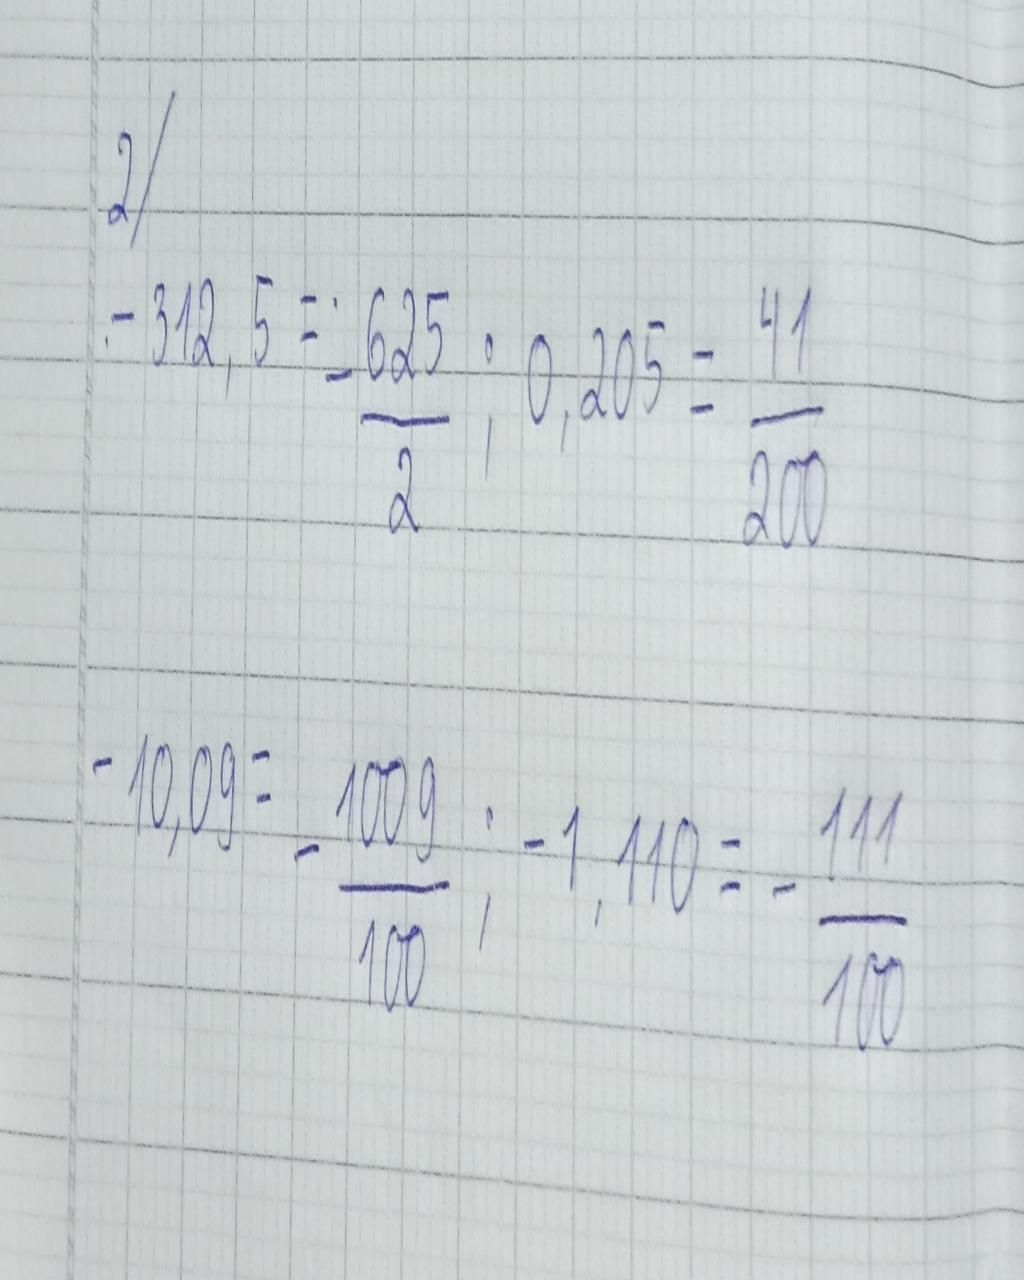 2/
-312,5 = -625/2 ; 0,205 = 41/200
-10,09 = -1009/100 ; -1,110 = -111/100